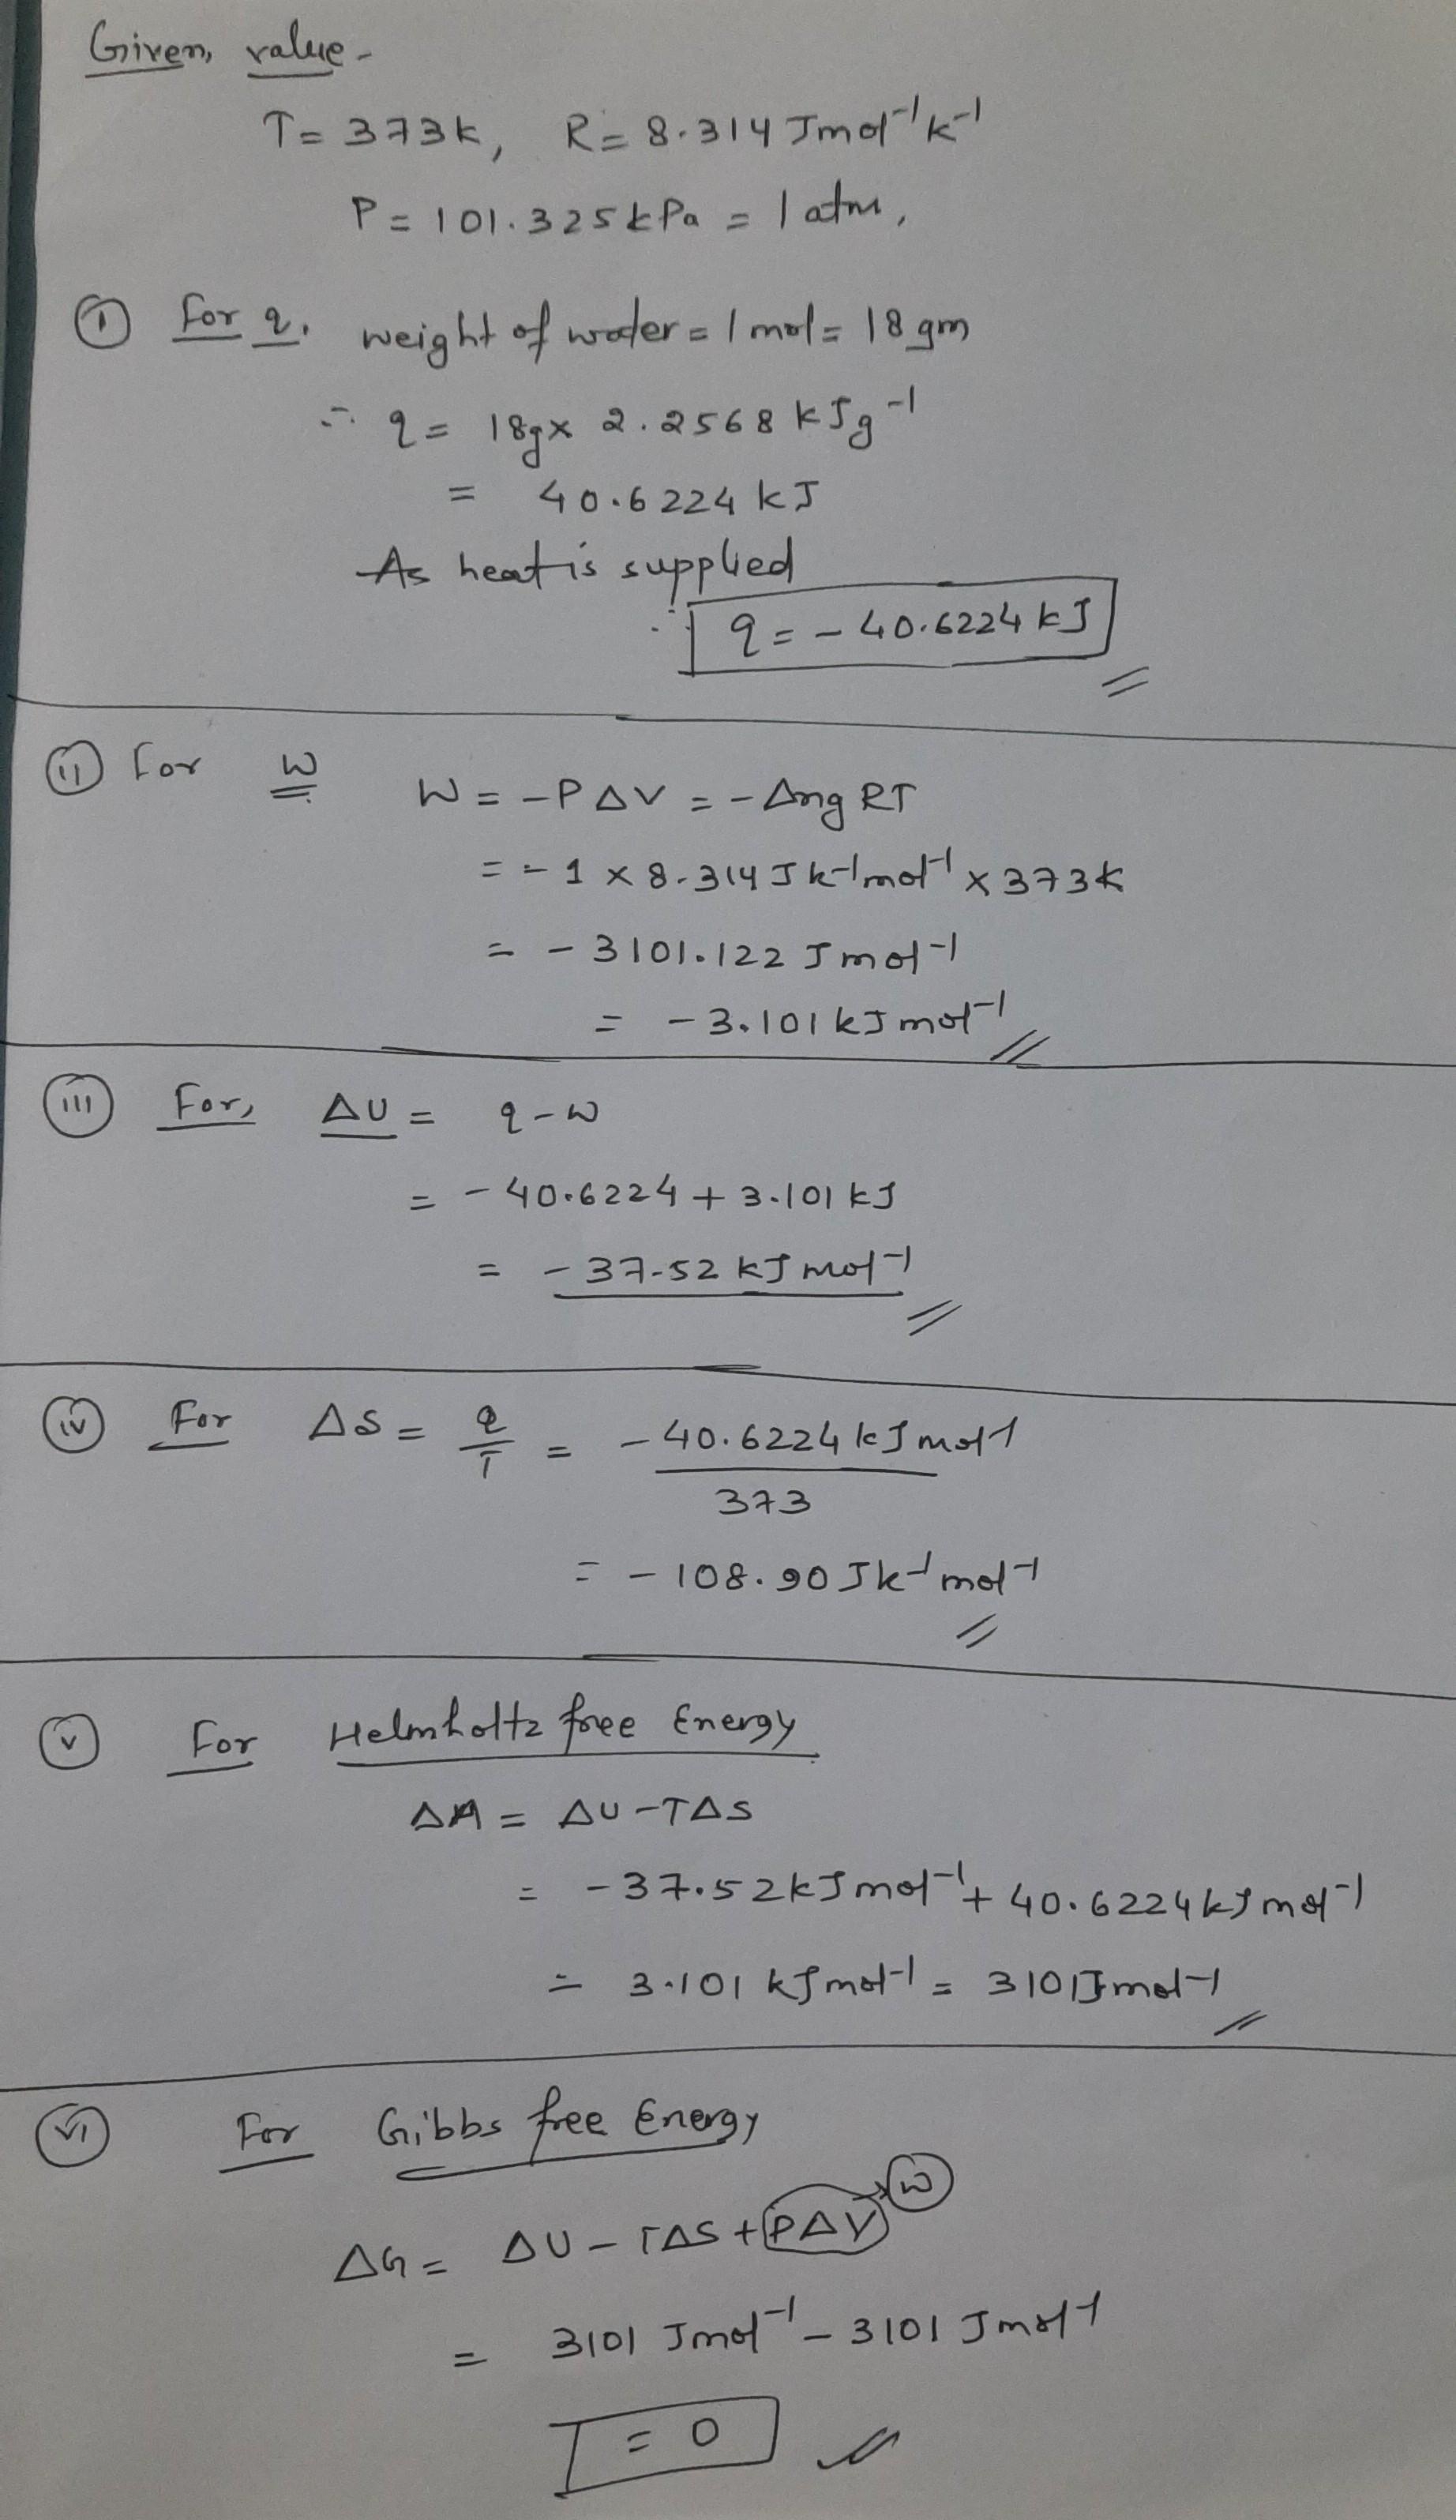 Given, value -
T = 373K, R = 8.314 Jmol⁻¹K⁻¹
P = 101.325kPa = 1 atm,
(i) For q. weight of water = 1 mol = 18 gm
∴ q = 18g × 2.2568 kJg⁻¹
= 40.6224 kJ
As heat is supplied
∴ q = - 40.6224 kJ
(ii) For W W = -PΔV = -Δng RT
= - 1 × 8.314 J k⁻¹mol⁻¹ × 373K
= - 3101.122 J mol⁻¹
= - 3.101 kJ mol⁻¹
(iii) For, ΔU = q - W
= - 40.6224 + 3.101 kJ
= - 37.52 kJ mol⁻¹
(iv) For ΔS = q/T = - 40.6224 kJ mol⁻¹
373
= - 108.90 J k⁻¹ mol⁻¹
(v) For Helmholtz free Energy
ΔA = ΔU - TΔS
= - 37.52kJ mol⁻¹ + 40.6224 kJ mol⁻¹
= 3.101 kJ mol⁻¹ = 3101 J mol⁻¹
(vi) For Gibbs free Energy
W
ΔG = ΔU - TΔS + PΔV
= 3101 J mol⁻¹ - 3101 J mol⁻¹
= 0